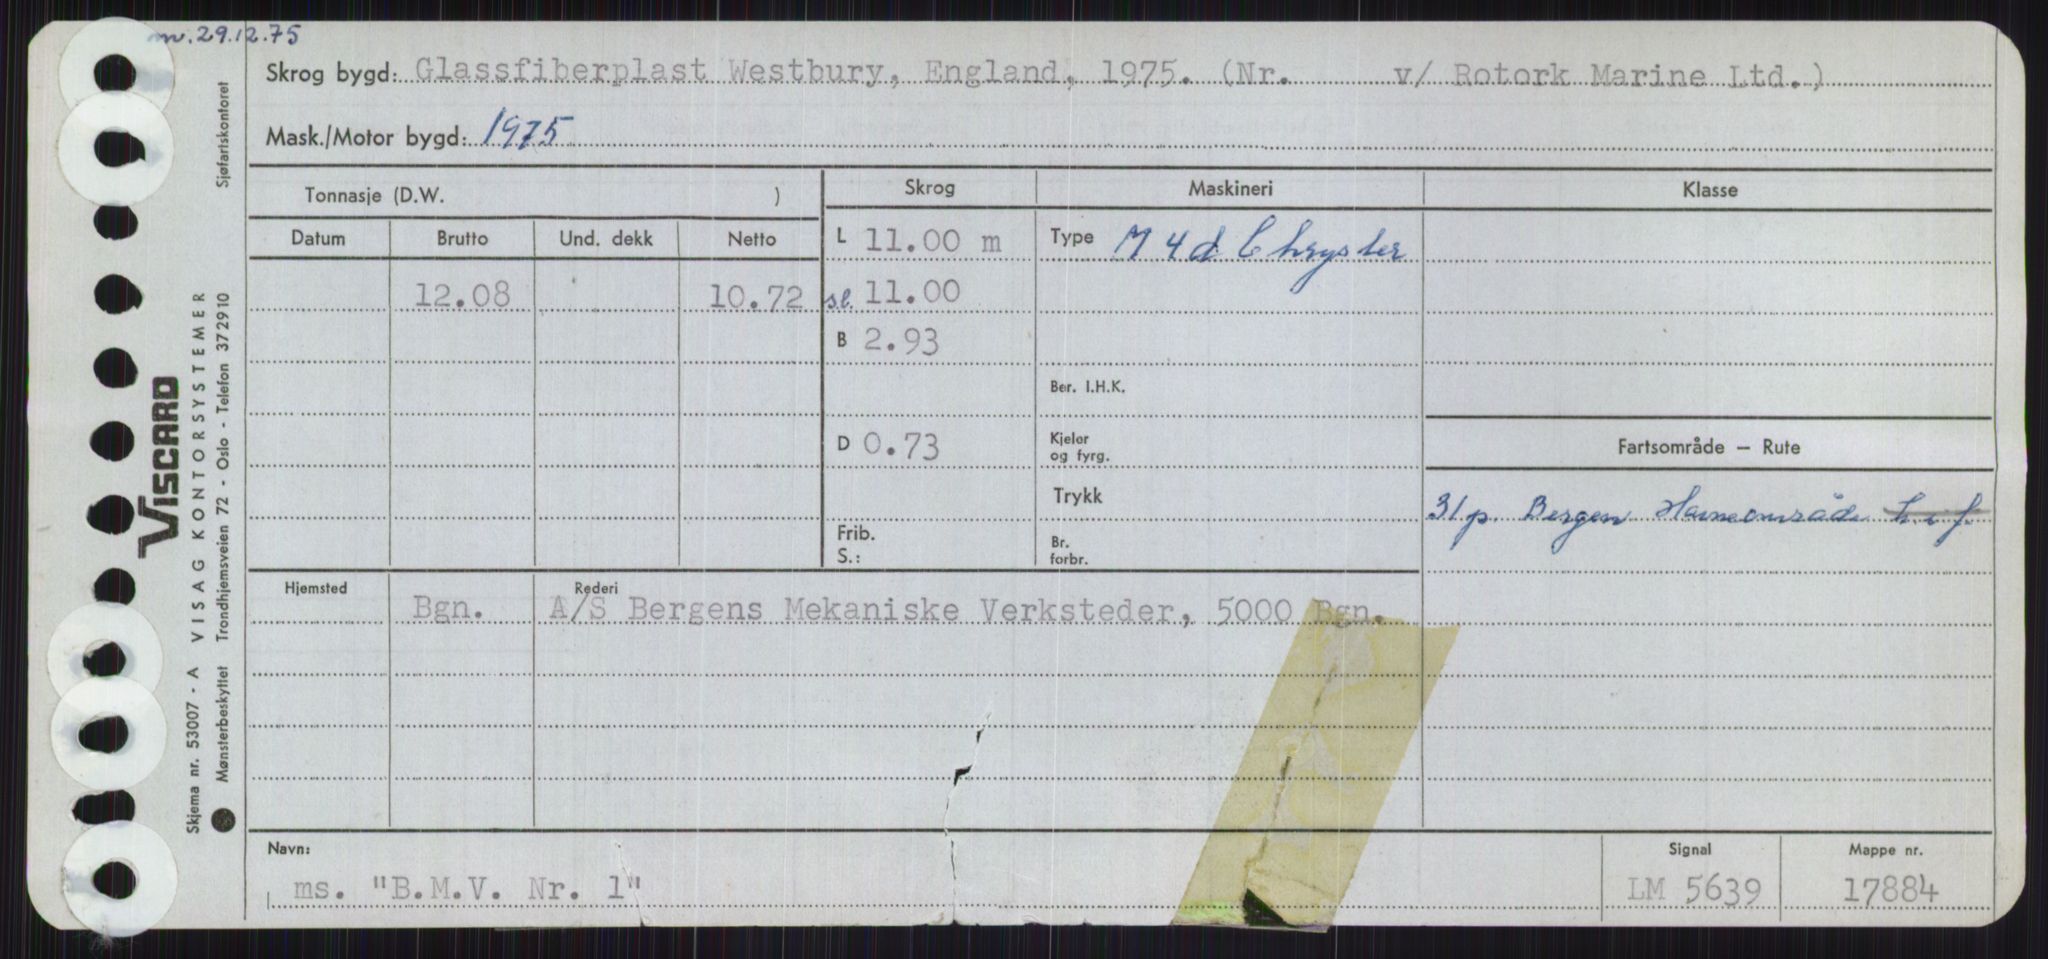 m. 29.12.75
Skrog bygd: Glassfiberplast Westbury, England, 1975. (Nr. v/ Rotork Marine Ltd.)
Mask./Motor bygd: 1975
Tonnasje (D.W. )
Skrog
Maskineri
Klasse
Datum Brutto Und. dekk Netto
L 11.00 m
Type M 4 d Chrysler
12.08 10.72
s.l. 11.00
B 2.93
Ber. I.H.K.
D 0.73
Kjeler
og fyrg.
Fartsområde — Rute
Trykk
31 p. Bergen Havneområde
Frib.
S.:
Br.
forbr.
Hjemsted
Rederi
Bgn. A/S Bergens Mekaniske Verksteder, 5000 Bgn.
Navn:
Signal
Mappe nr.
ms. "B.M.V. Nr. 1"
LM 5639
17884
Sjøfartskontoret
VISCARD
Skjema nr. 53007 - A VISAG KONTORSYSTEMER
Mønsterbeskyttet Trondhjemsveien 72 - Oslo - Telefon 372910